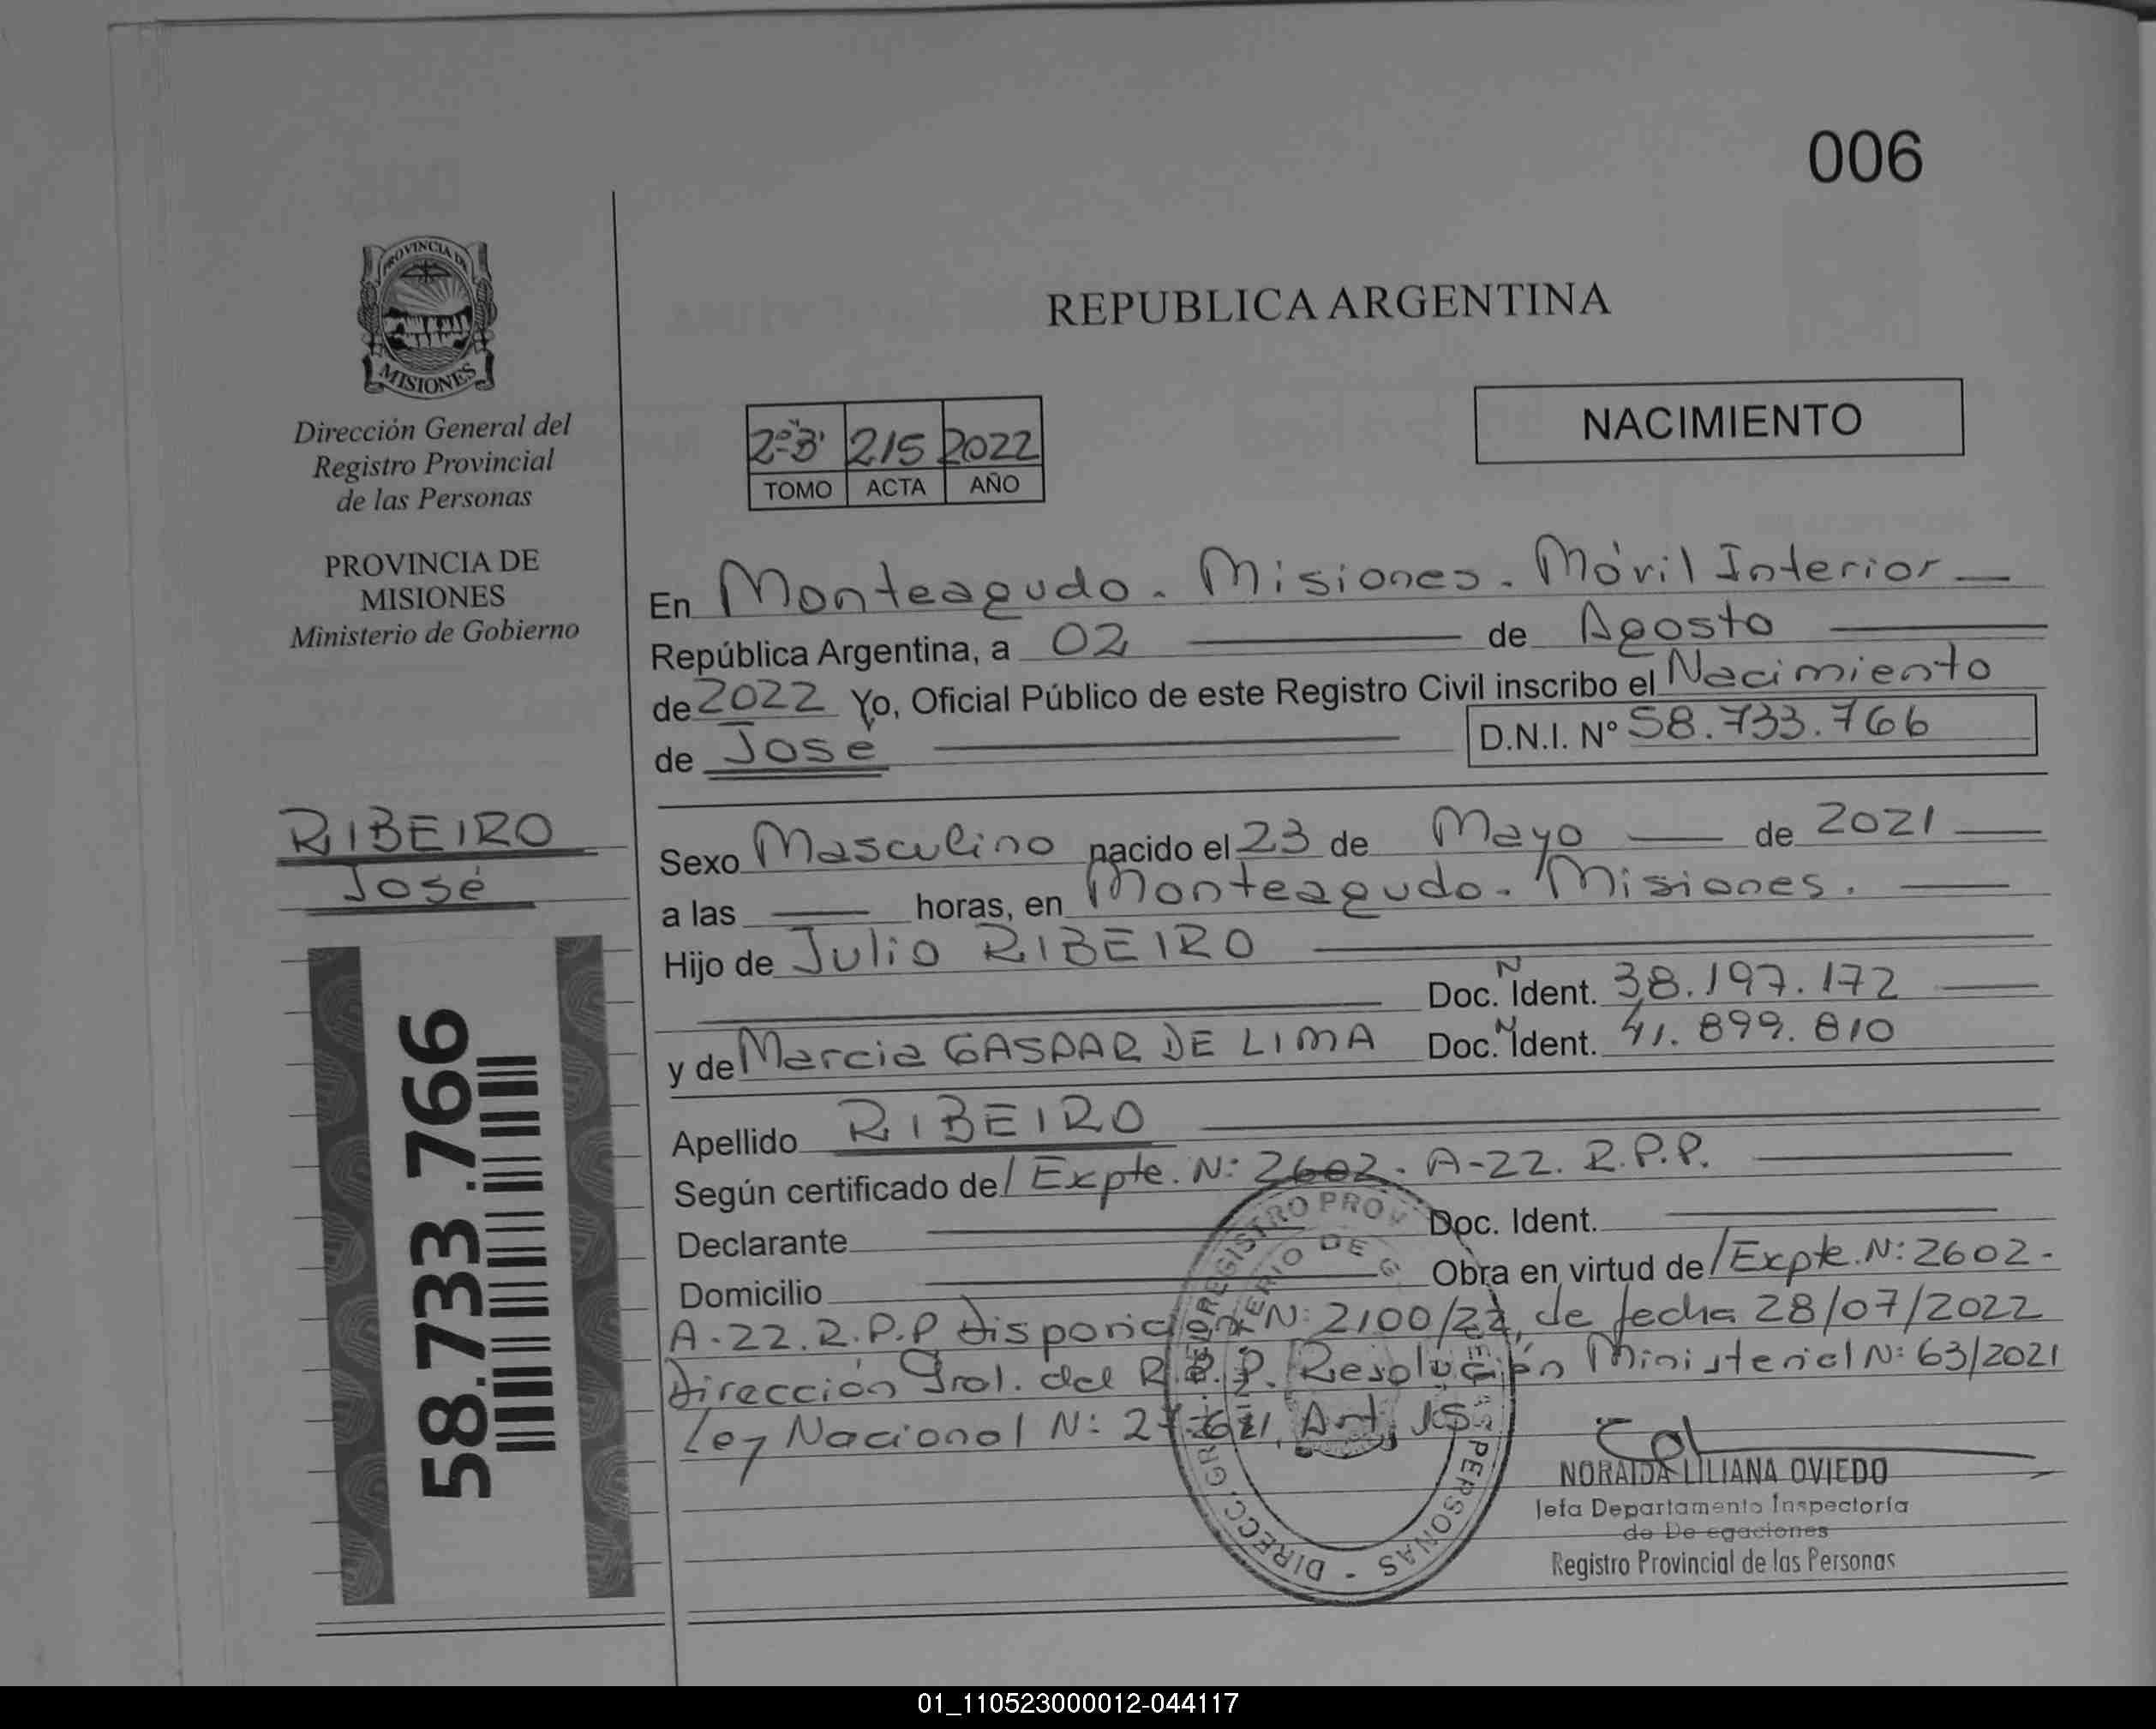 006
PROVINCIA DE
MISIONES
Dirección General del
Registro Provincial
de las Personas
PROVINCIA DE
MISIONES
Ministerio de Gobierno
RIBEIRO
José
58.733.766
REPUBLICA ARGENTINA
NACIMIENTO
2º"B" 215 2022
TOMO ACTA AÑO
En Monteagudo. Misiones. Móvil Interior
República Argentina, a 02 de Agosto
de 2022 Yo, Oficial Público de este Registro Civil inscribo el Nacimiento
de José D.N.I. Nº 58.733.766
Sexo Masculino nacido el 23 de Mayo de 2021
a las horas, en Monteagudo. Misiones.
Hijo de Julio RIBEIRO
Doc. N Ident. 38.197.172
y de Marcia GASPAR DE LIMA Doc. N Ident. 41.899.810
Apellido RIBEIRO
Según certificado de/ Expte. N: 2602. A-22. R.P.P.
Declarante Doc. Ident.
Domicilio Obra en virtud de/ Expte. N: 2602-
A-22. R.P.P Disposición N: 2100/22, de fecha 28/07/2022
Dirección Gral. del R.P.P. Resolución Ministerial N: 63/2021
Ley Nacional N: 27.611, Art. 15
DIRECC. GRAL. REGISTRO PROV PERSONAS -
NORAIDA LILIANA OVIEDO
Jefa Departamento Inspectoría
de De egaciones
Registro Provincial de las Personas
01_110523000012-044117